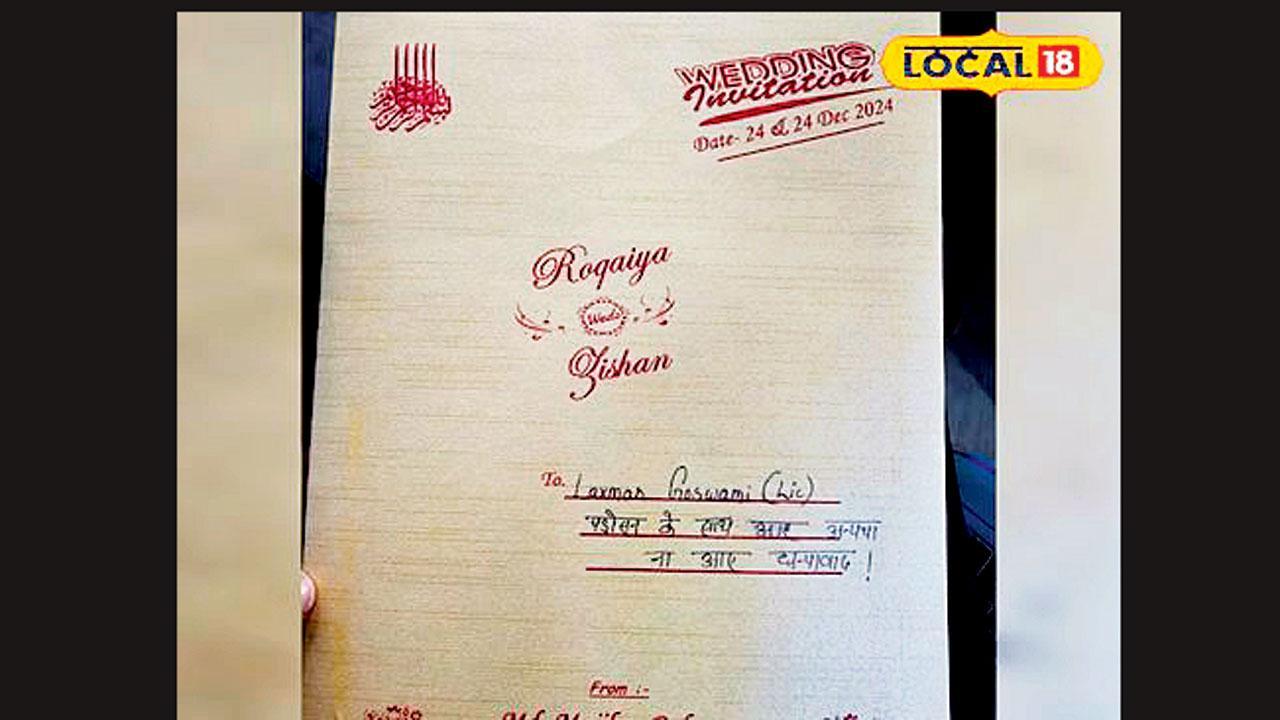 LOCAL 18
WEDDING
Invitation
Date- 24 & 24 Dec 2024
Roqaiya
Weds
Zishan
To. Laxman Goswami (Lic)
पड़ोसन के साथ आए अन्यथा
ना आए धन्यवाद !
From :-